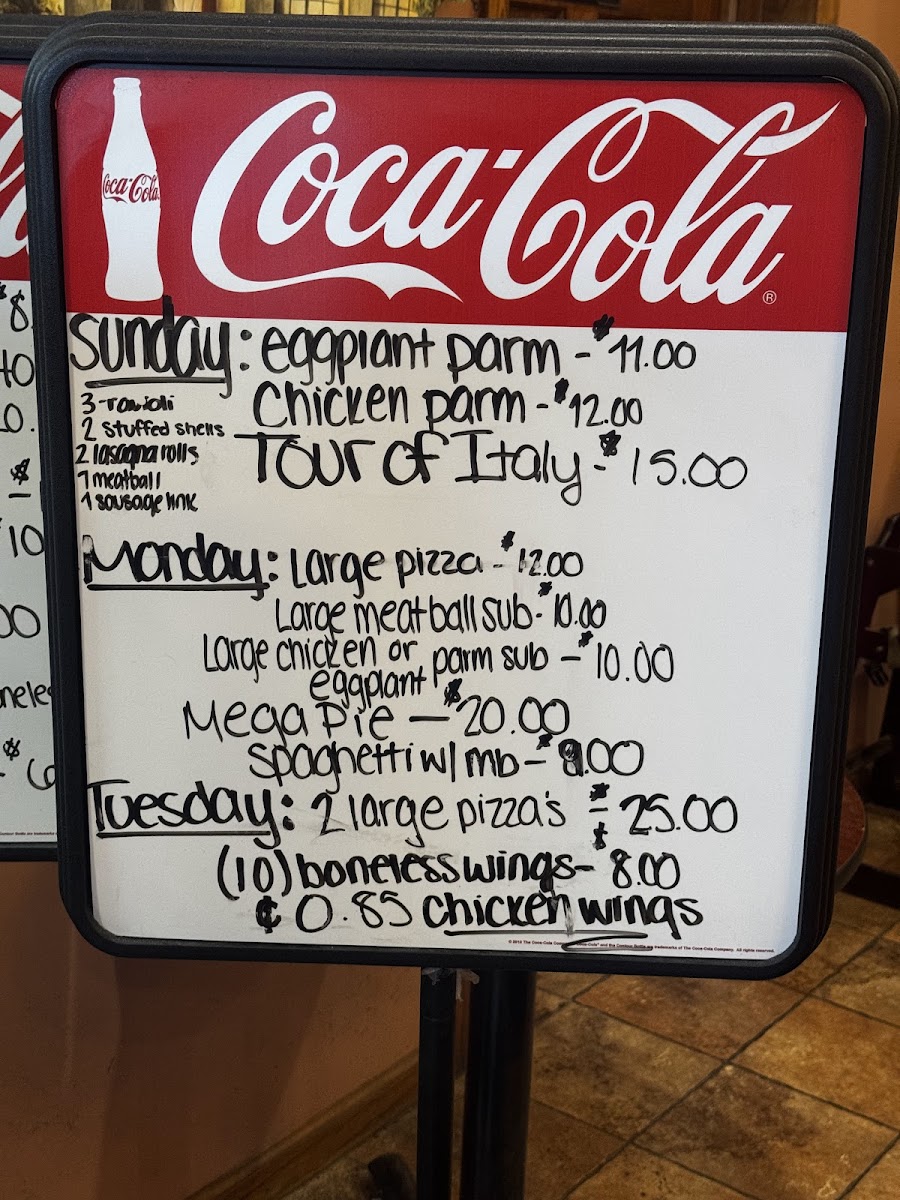 Coca-Cola
Coca-Cola®
Sunday: eggplant parm - $11.00
Chicken parm - $12.00
Tour of Italy - $15.00
3 - ravioli
2 stuffed shells
2 lasagna rolls
1 meatball
1 sausage link
Monday: Large pizza - $12.00
Large meatball sub - $10.00
Large chicken or eggplant parm sub - $10.00
Mega Pie — $20.00
spaghetti w/ mb - $9.00
Tuesday: 2 large pizza's - $25.00
(10) boneless wings - $8.00
¢ 0.85 chicken wings
$8.
40
0.
$
10
00
neles
$
6